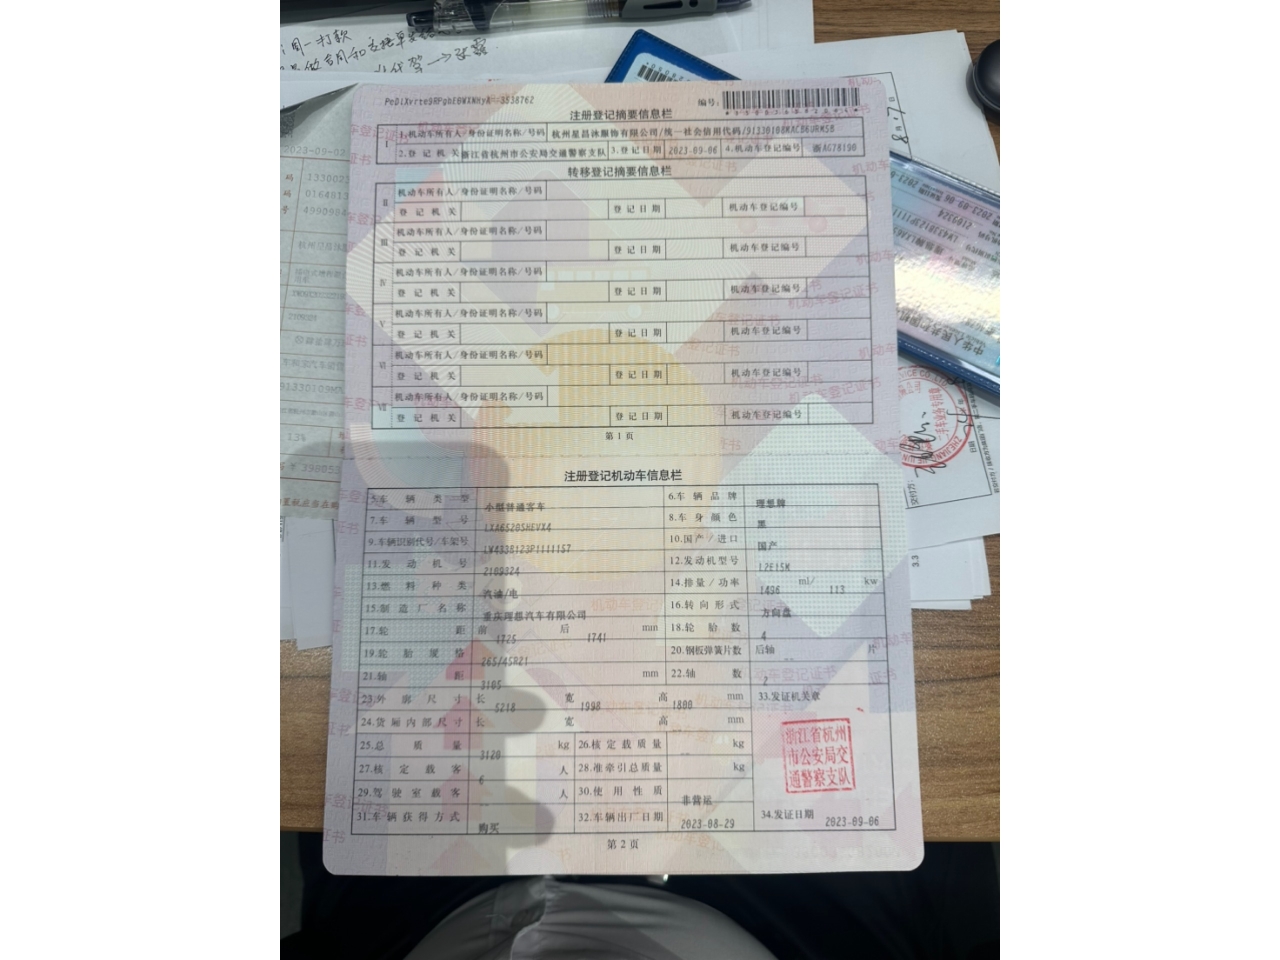 PeDiXvrte9RPgbEBWXNHyA--3538762
编号:
注册登记摘要信息栏
Ⅰ 1.机动车所有人/身份证明名称/号码 杭州星昌沐服饰有限公司/统一社会信用代码/91330108MACB6URM5B
2.登记机关 浙江省杭州市公安局交通警察支队 3.登记日期 2023-09-06 4.机动车登记编号 浙AG78190
转移登记摘要信息栏
Ⅱ 机动车所有人/身份证明名称/号码
登记机关 登记日期 机动车登记编号
Ⅲ 机动车所有人/身份证明名称/号码
登记机关 登记日期 机动车登记编号
Ⅳ 机动车所有人/身份证明名称/号码
登记机关 登记日期 机动车登记编号
Ⅴ 机动车所有人/身份证明名称/号码
登记机关 登记日期 机动车登记编号
Ⅵ 机动车所有人/身份证明名称/号码
登记机关 登记日期 机动车登记编号
Ⅶ 机动车所有人/身份证明名称/号码
登记机关 登记日期 机动车登记编号
第1页
注册登记机动车信息栏
5.车辆类型 小型普通客车 6.车辆品牌 理想牌
7.车辆型号 LXA6520SHEVX4 8.车身颜色 黑
9.车辆识别代号/车架号 LW433B123P1111157 10.国产/进口 国产
11.发动机号 2109324 12.发动机型号 L2E15M
13.燃料种类 汽油/电 14.排量/功率 1496 ml/ 113 kw
15.制造厂名称 重庆理想汽车有限公司 16.转向形式 方向盘
17.轮距 前 1725 后 1741 mm 18.轮胎数 4
19.轮胎规格 265/45R21 20.钢板弹簧片数 后轴 -- 片
21.轴距 3105 mm 22.轴数 2
23.外廓尺寸 长 5218 宽 1998 高 1800 mm 33.发证机关章
24.货厢内部尺寸 长 宽 高 mm
25.总质量 3120 kg 26.核定载质量 -- kg
27.核定载客 6 人 28.准牵引总质量 kg
29.驾驶室载客 -- 人 30.使用性质 非营运
31.车辆获得方式 购买 32.车辆出厂日期 2023-08-29 34.发证日期 2023-09-06
浙江省杭州
市公安局交
通警察支队
第2页
2023-09-02